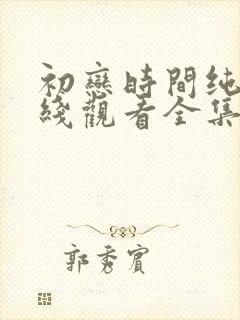 初戀時間纯
綫觀看全集
郭秀賓